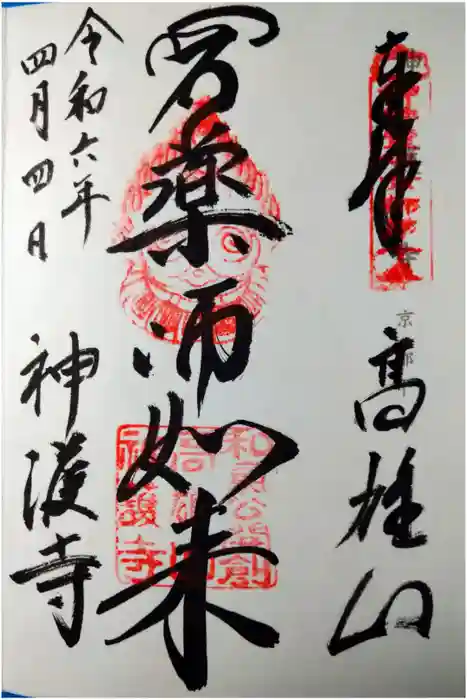 奉拝
京都
高雄山
薬師如来
高雄山
神護寺
令和六年
四月四日
神護寺